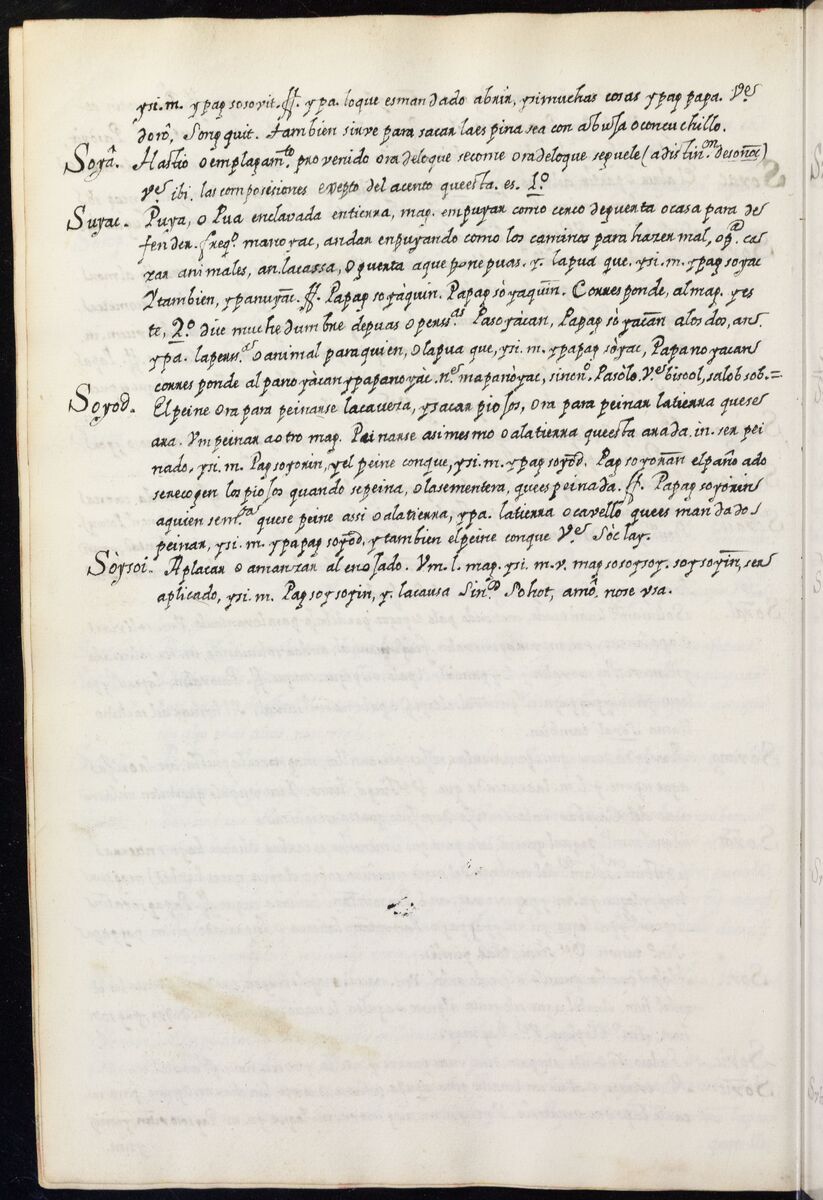 ysi.m. ypag sosovit. #. ypa. loque esmandado abrir, ysimuchas cosas ypag papa. Ves
doro, Songquit. tambien sirve para sacar laes pina sea con abuja oconcuchillo.
Soyâ. Hastio o emplagamto provenido ora deloque secome ora deloque sequele (adistinon desonor)
Ves ibi. las composisiones exepto del acento queesta. es. 1º
Suyac. Puya, o Pua enclavada entierra, mag. empuyar como cerco dequenta ocasa para de
fender. freqº. manoyac, andar enpuyando como los caminos para hazer mal, opª. ca-
zar animales, an. lacassa, oquerta aque ponepuas. y. lapua que, ysi.m. ypag soyac
Ytambien, ypanuyac. #. Papag soyàquin. Papag sòyaquin. Corresponde, almag. yes
te, 2º dice muchedumbre depuas opersas Pasoyàcan, Papag sòyacan alosdos, an.
ypa. lapersa oanimal paraquien, olapua que, ysi.m. ypapag sòyac, Papanoyacan
corresponde al panoyàcan ypapanoyàc. nes mapanòyac, sinonº. Pasòlo. Ves bisool, salob sob.=
Soyod. El peine ora para peinarse lacaveza, ysacar piojos, ora para peinar latierra quese
ara. Vm peinar aotro mag. Peinarse asimesmo oalatierra queesta arada. in. ser pei
nado, ysi.m. Pagsoyorin, yel peine conque, ysi.m. ypag soyod. Pag soyoran elpaño ado
serecogen lospiojos quando sepeina, olasementera, quees peinada. #. Papag soyorin
aquien semda quese peine assi oalatierra, ypa. latierra ocavello quees mandado
peinar, ysi.m. ypapag soyod, ytambien elpeine conque Ves Sòclay.
Sòysoi. Aplacar o amanzar al enojado. Vm. l. mag. ysi. m. v. mag sosoysoy. soysoyin, ser
aplicado, ysi.m. Pag soysoyin, y. lacausa Sinco Sohot, amô. nose vsa.